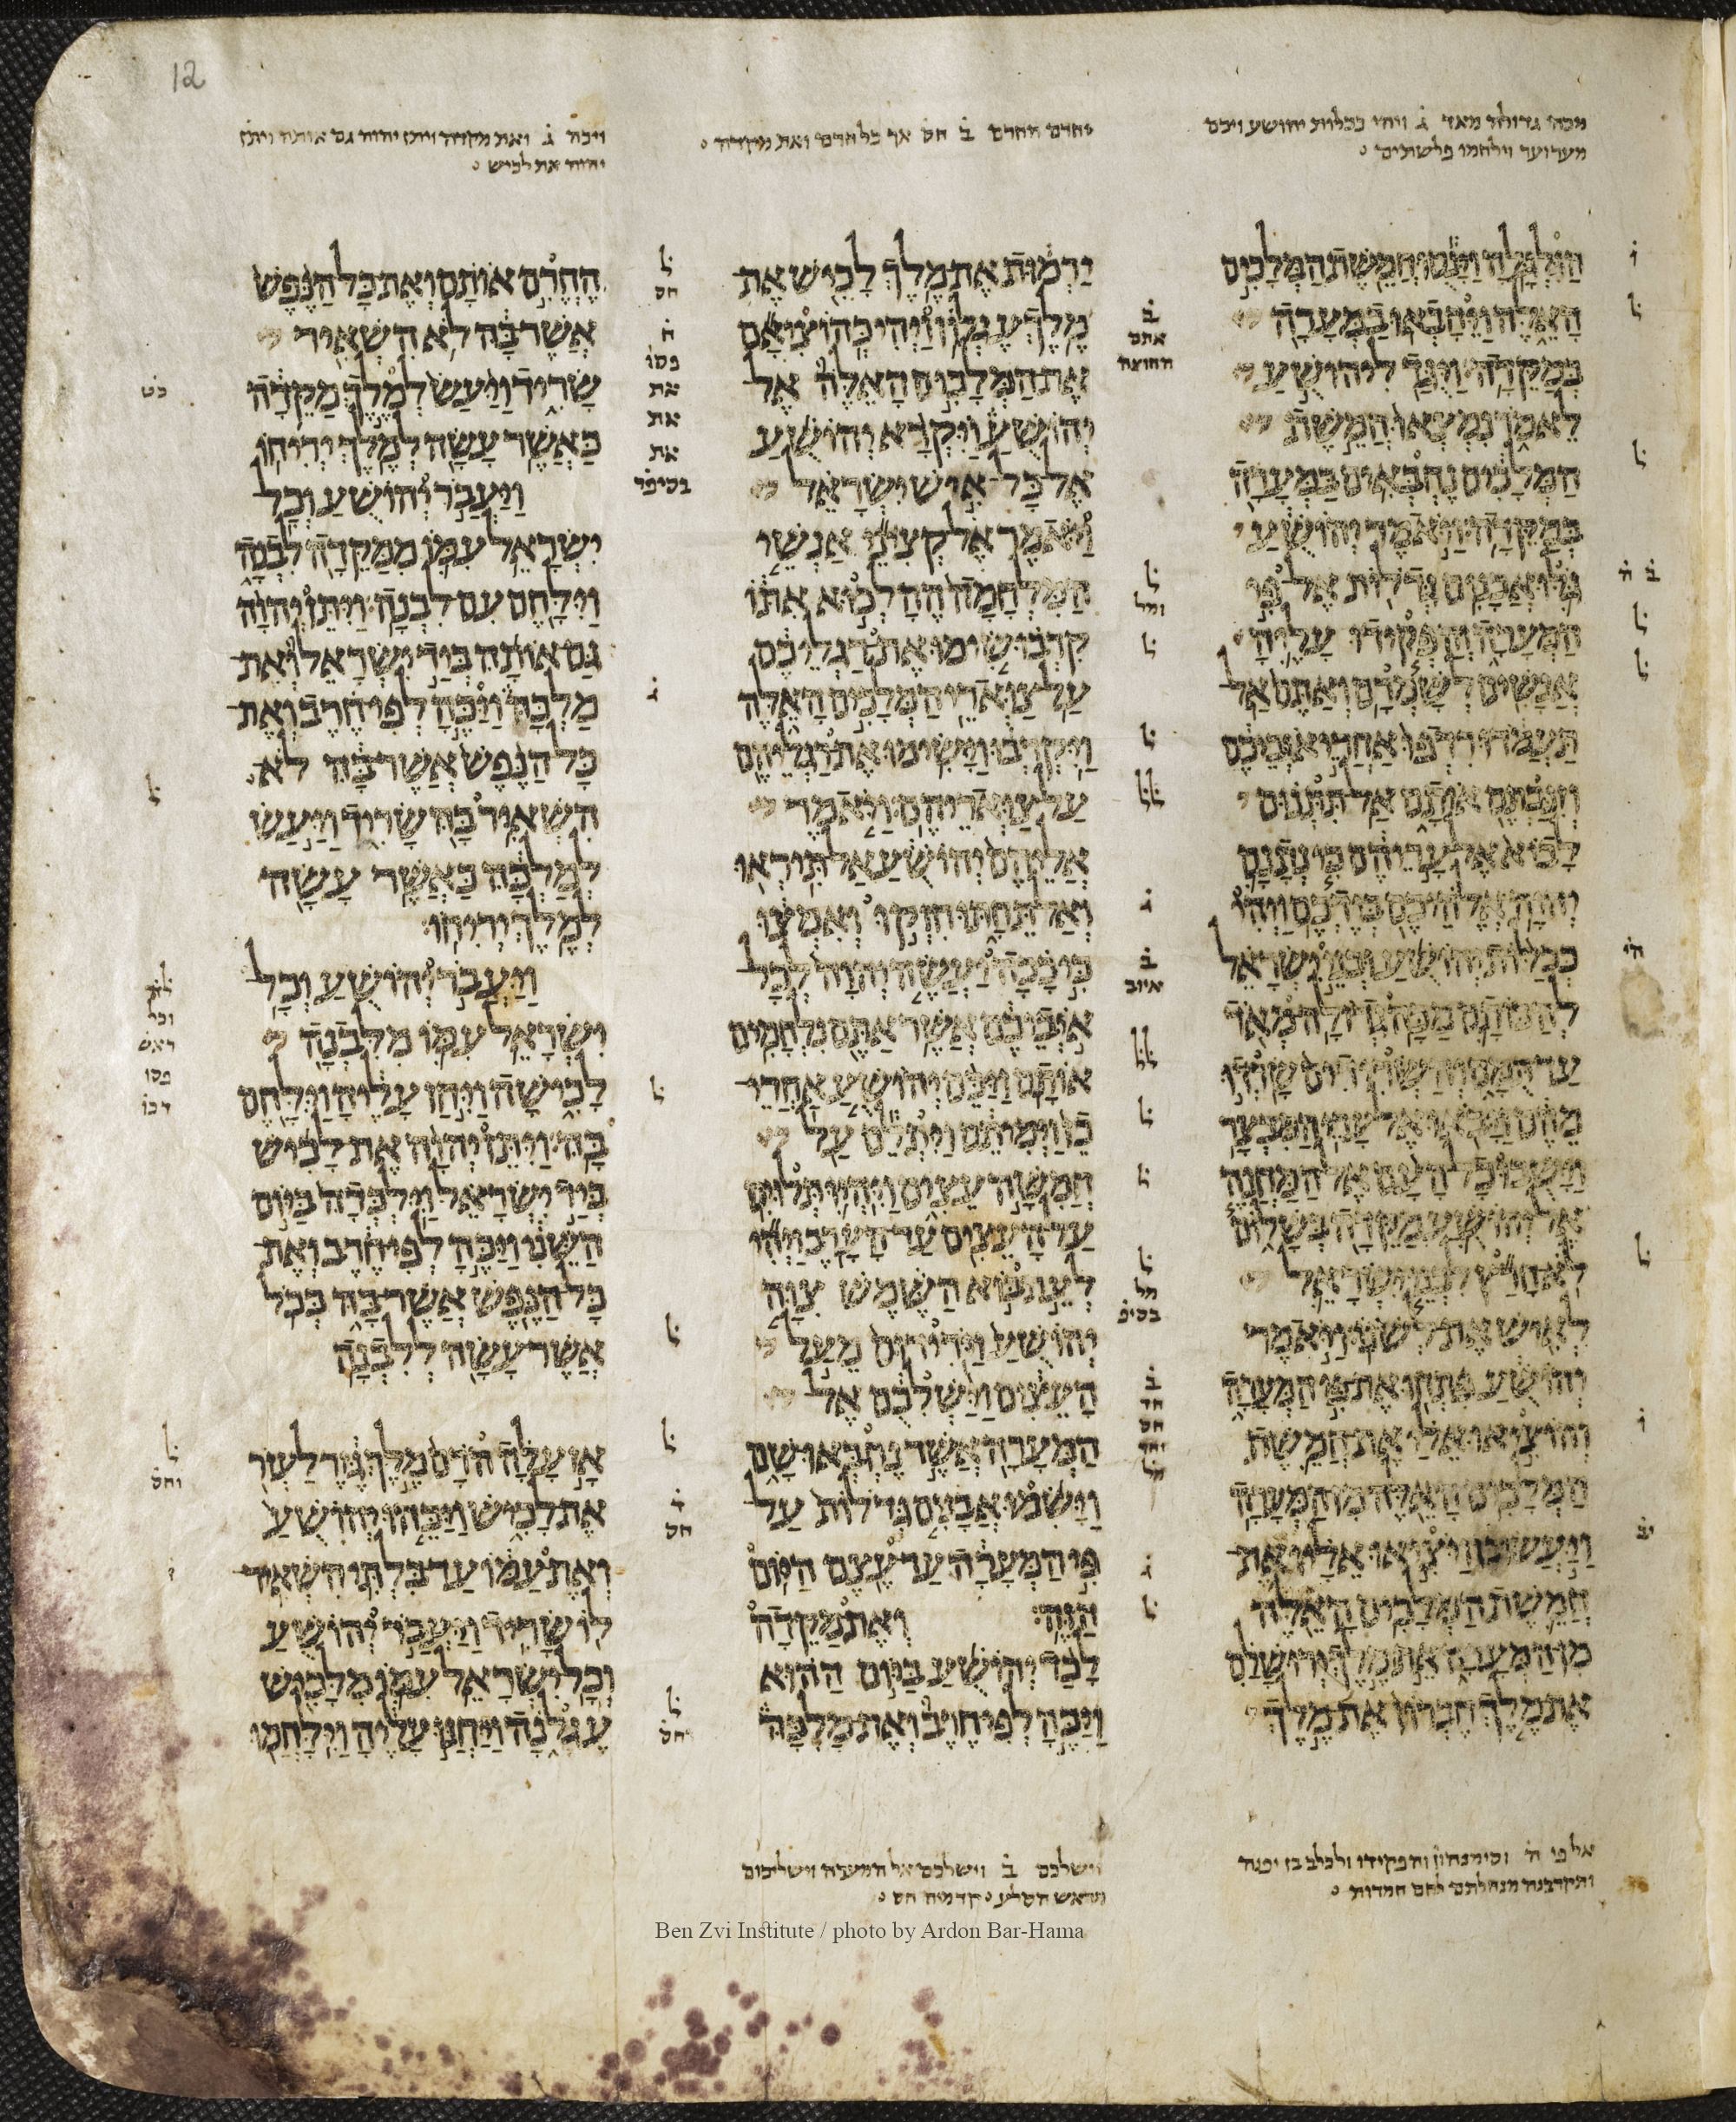 12
מכה גדולה מאד ג ויהי ככלות יהושע ויכם
מערוער וילחמו פלשתים
יחרם החרם ב חס אך כל חרם ואת מקדה
ויכה ג ואת מקדה ויתן יהוה גם אותה ויתן
יהוה את לכיש
הגלגלה וינסו חמשת המלכים
האלה ויחבאו במערה
במקדה ויגד ליהושע
לאמר נמצאו חמשת
המלכים נחבאים במערה
במקדה ויאמר יהושע
גלו אבנים גדלות אל פי
המערה והפקידו עליה
אנשים לשמרם ואתם אל
תעמדו רדפו אחרי איביכם
וזנבתם אותם אל תתנום
לבוא אל עריהם כי נתנם
יהוה אלהיכם בידכם ויהי
ככלות יהושע ובני ישראל
להכותם מכה גדולה מאד
עד תמם והשרידים שרדו
מהם ויבאו אל ערי המבצר
וישבו כל העם אל המחנה
אל יהושע מקדה בשלום
לא חרץ לבני ישראל
לאיש את לשנו ויאמר
יהושע פתחו את פי המערה
והוציאו אלי את חמשת
המלכים האלה מן המערה
ויעשו כן ויציאו אליו את
חמשת המלכים האלה
מן המערה את מלך ירושלם
את מלך חברון את מלך
ירמות את מלך לכיש את
מלך עגלון ויהי כהוציאם
את המלכים האלה אל
יהושע ויקרא יהושע
אל כל איש ישראל
ויאמר אל קציני אנשי
המלחמה ההלכוא אתו
קרבו שימו את רגליכם
על צוארי המלכים האלה
ויקרבו וישימו את רגליהם
על צואריהם ויאמר
אליהם יהושע אל תיראו
ואל תחתו חזקו ואמצו
כי ככה יעשה יהוה לכל
אויביכם אשר אתם נלחמים
אותם ויכם יהושע אחרי
כן וימיתם ויתלם על
חמשה עצים ויהיו תלוים
על העצים עד הערב ויהי
לעת בוא השמש צוה
יהושע וירידום מעל
העצים וישלכם אל
המערה אשר נחבאו שם
וישמו אבנים גדלות על
פי המערה עד עצם היום
הזה ואת מקדה
לכד יהושע ביום ההוא
ויכה לפי חרב ואת מלכה
החרם אותם ואת כל הנפש
אשר בה לא השאיר
שריד ויעש למלך מקדה
כאשר עשה למלך יריחו
ויעבר יהושע וכל
ישראל עמו ממקדה לבנה
וילחם עם לבנה ויתן יהוה
גם אותה ביד ישראל ואת
מלכה ויכה לפי חרב ואת
כל הנפש אשר בה לא
השאיר בה שריד ויעש
למלכה כאשר עשה
למלך יריחו
ויעבר יהושע וכל
ישראל עמו מלבנה
לכישה ויחן עליה וילחם
בה ויתן יהוה את לכיש
ביד ישראל וילכדה ביום
השני ויכה לפי חרב ואת
כל הנפש אשר בה ככל
אשר עשה ללבנה
אז עלה הרם מלך גזר לעזר
את לכיש ויכהו יהושע
ואת עמו עד בלתי השאיר
לו שריד ויעבר יהושע
וכל ישראל עמו מלכיש
עגלנה ויחנו עליה וילחמו
אל פי ח וסימנהון והפקידו ולכלב בן יפנה
ותקרבנה מנחלתם לחם חמדות
וישלכם ב וישלכם אל המערה וישליכום
מראש הסלע קדמיה חס
Ben Zvi Institute / photo by Ardon Bar-Hama